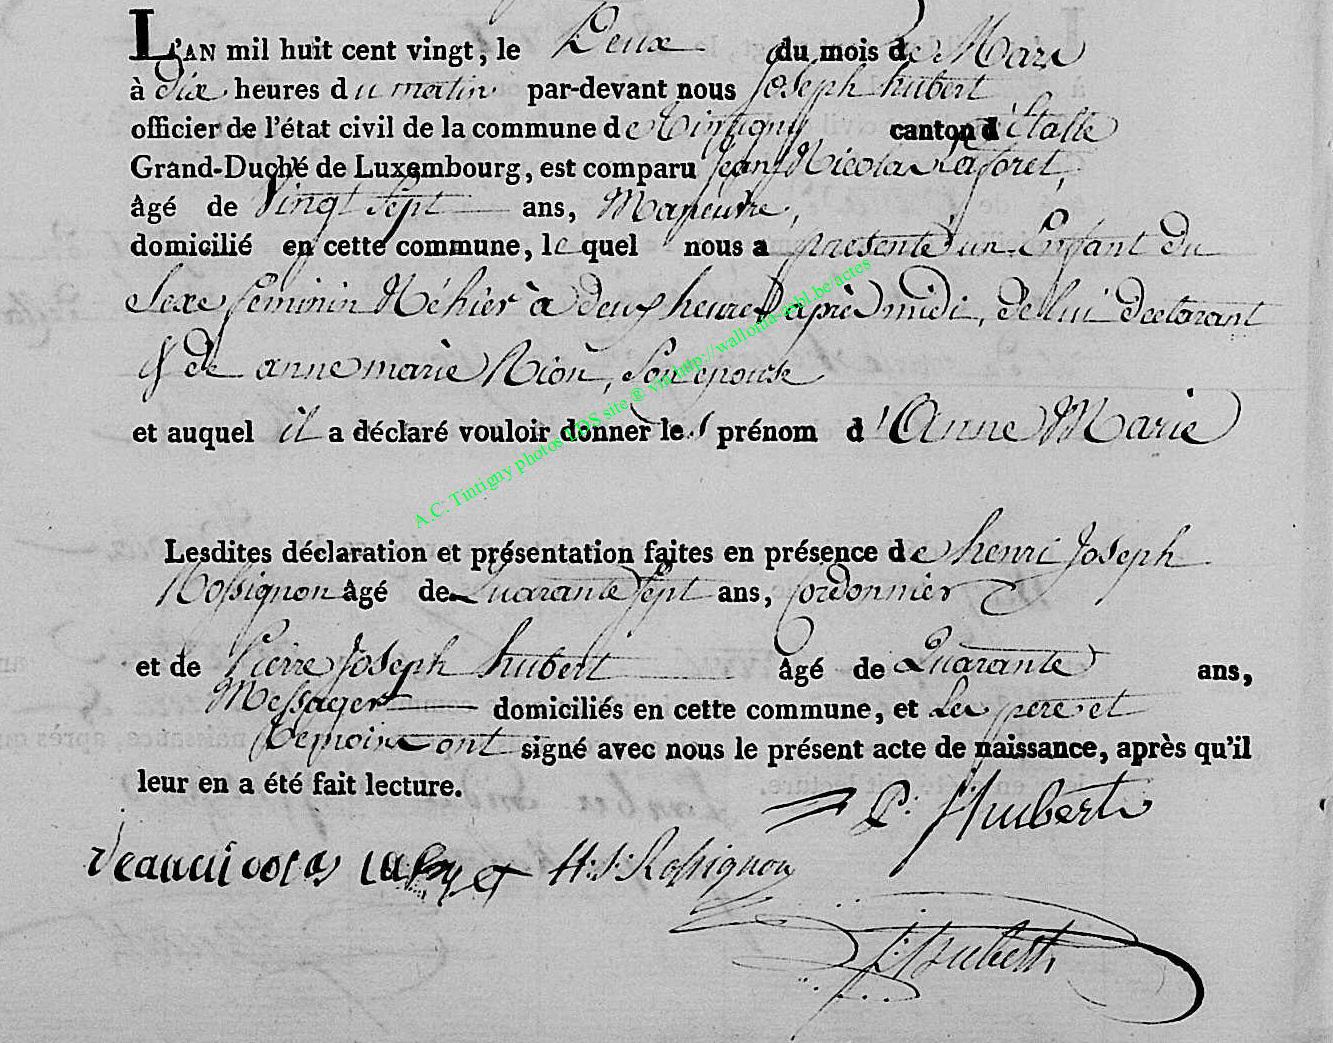 L'AN mil huit cent vingt, le Deux du mois de Mars
à Dix heures du matin par-devant nous Joseph hubert
officier de l'état civil de la commune de Tintigny canton d'Etalle
Grand-Duché de Luxembourg, est comparu Jean Nicolas Laforet,
âgé de Vingt Sept ans, Maneuvre,
domicilié en cette commune, le quel nous a présenté un Enfant du
Sexe féminin Né hier à deux heures après midi, de lui déclarant
& de anne marie Rion, Son épouse
et auquel il a déclaré vouloir donner les prénom d'Anne Marie
A.C. Tintigny photos VDS site ® via http://wallonia-asbl.be/actes
Lesdites déclaration et présentation faites en présence de henri Joseph
Rossignon âgé de Quarante Sept ans, Cordonnier
et de Pierre Joseph hubert âgé de Quarante ans,
Messager domiciliés en cette commune, et Les père et
témoins ont signé avec nous le présent acte de naissance, après qu'il
leur en a été fait lecture.
P. Hubert
Jeannicolas laforet H: J: Rossignon
J: Hubert